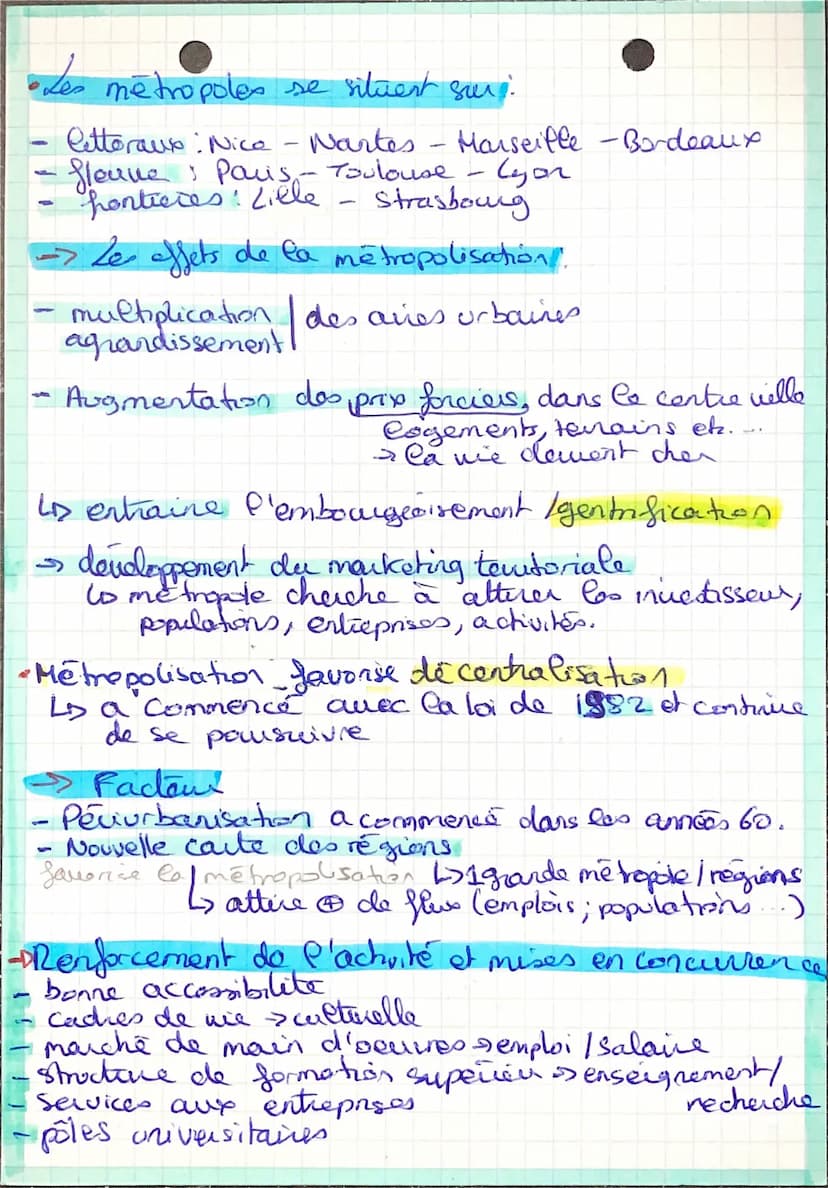 • Les métropoles se situent sur :
- littoraux : Nice - Nantes - Marseille - Bordeaux
- fleuve : Paris - Toulouse - Lyon
- frontières : Lille - Strasbourg
-> Les effets de la métropolisation
- multiplication | des aires urbaines
agrandissement |
- Augmentation des prix fonciers, dans le centre ville
logements, terrains etc....
-> la vie devient cher
↳ entraine l'embourgeoisement / gentrification
-> développement du marketing territoriale
↳ métropole cherche à attirer les investisseurs,
populations, entreprises, activités.
• Métropolisation favorise décentralisation
↳ a commencé avec la loi de 1982 et continue
de se poursuivre
-> Facteur
- Périurbanisation a commencé dans les années 60.
- Nouvelle carte des régions
favorise la métropolisation ↳ 1 grande métropole / régions
↳ attire ⊕ de flux (emplois ; populations ...)
-> Renforcement de l'activité et mises en concurrence
- bonne accessibilité
- cadres de vie -> culturelle
- marché de main d'oeuvres -> emploi / salaire
- structure de formation supérieur -> enseignement /
recherche
- services aux entreprises
- pôles universitaires